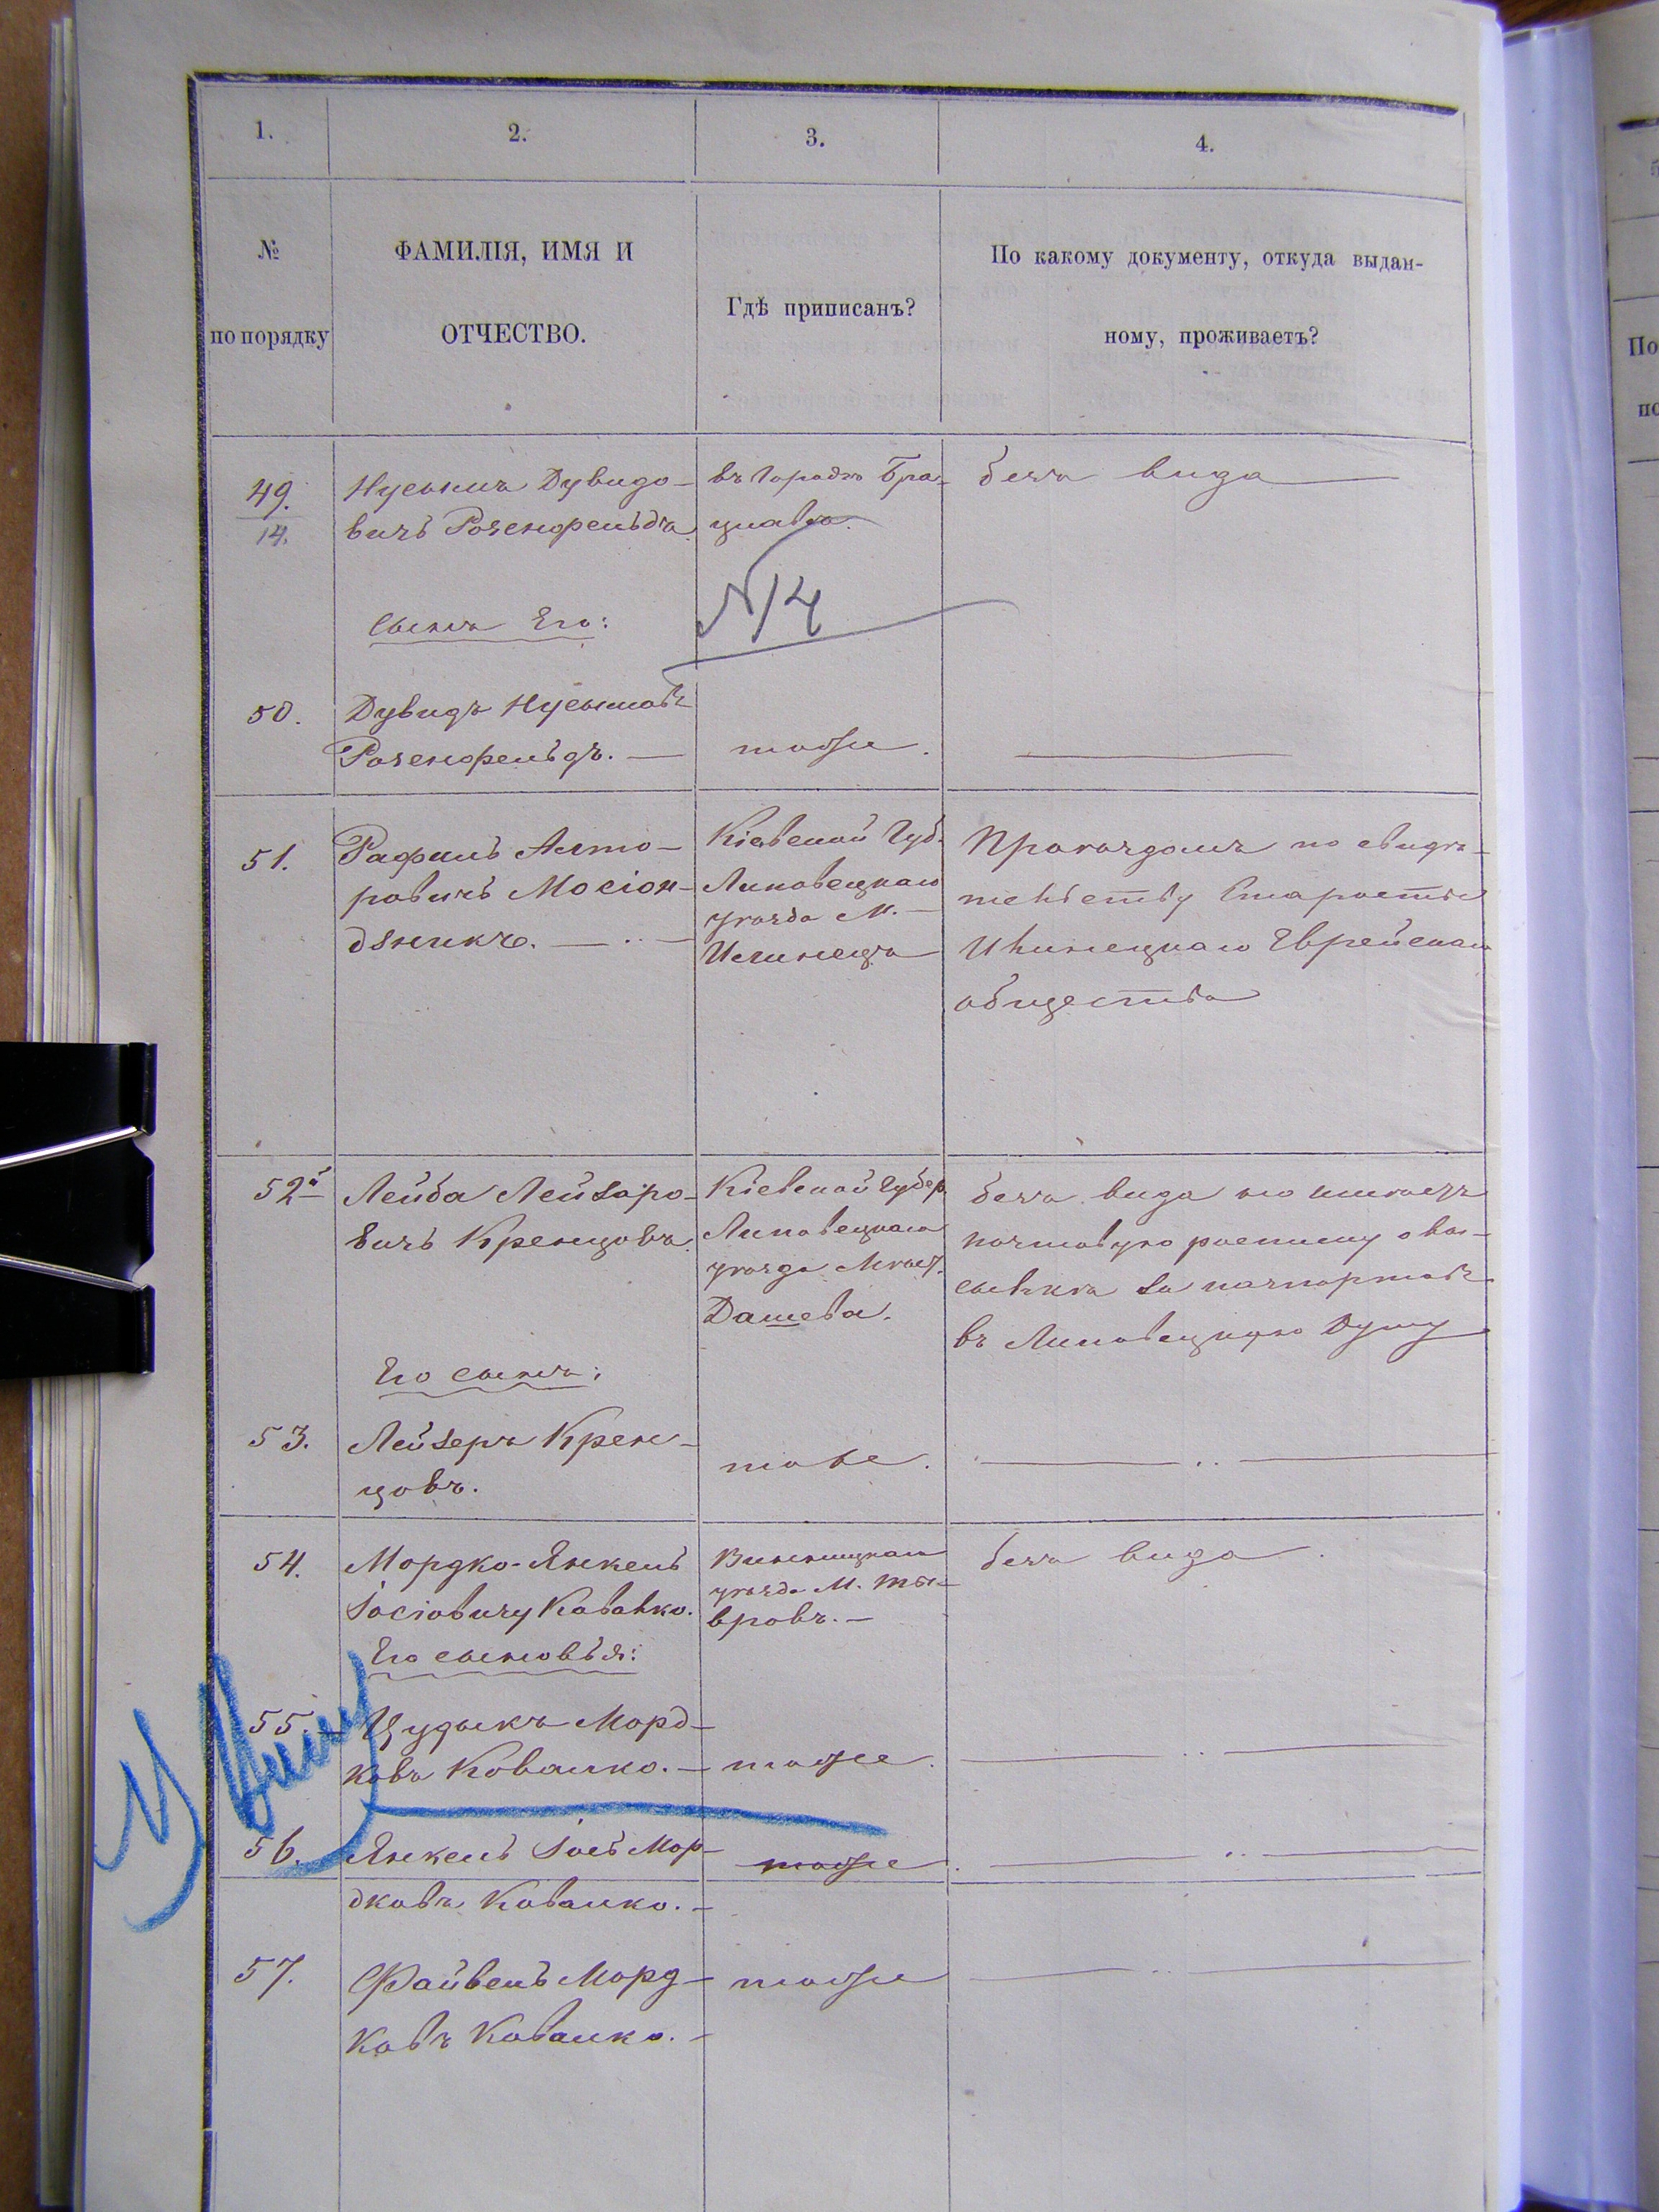 1.
2.
3.
4.
№
по порядку
ФАМИЛІЯ, ИМЯ И
ОТЧЕСТВО.
Гдѣ приписанъ?
По какому документу, откуда выдан-
ному, проживаетъ?
49.
14.
Нусымъ Дувидо-
вичъ Розенфельдъ.
въ Городѣ Бра-
цлавѣ.
безъ вида
№ 14
Сынъ Его:
50.
Дувидъ Нусымовъ
Розенфельдъ. —
тоже.
51.
Рафиль
ровичъ
Кіевской Губ.
Липовецкаго
уѣзда М. —
Илинецъ
Проѣздомъ по свидѣ-
тельству Старосты
Илинецкаго Еврейскаго
общества
52й
Лейба Лейзеро-
вичъ Кренцовъ.
Кіевской Губер.
Липовецкаго
уѣзда Мѣст.
Дашева.
безъ вида но имѣетъ
почтовую росписку о вы-
сылкѣ за паспортовъ
въ Липовецкую Думу
Его сынъ:
53.
Лейзеръ Крен-
цовъ.
тоже.
54.
Мордко-Янкель
Іосіовичу Ковалко.
Винницкаго
уѣзда М. Ты-
вровъ. —
безъ вида.
Его сыновья:
55.
Цудыкъ Морд-
ковъ Ковалко. —
тоже.
56.
Янкель Іось Мор-
дковъ Ковалко. —
тоже.
57.
Файвель Морд-
ковъ Ковалко. —
тоже
По